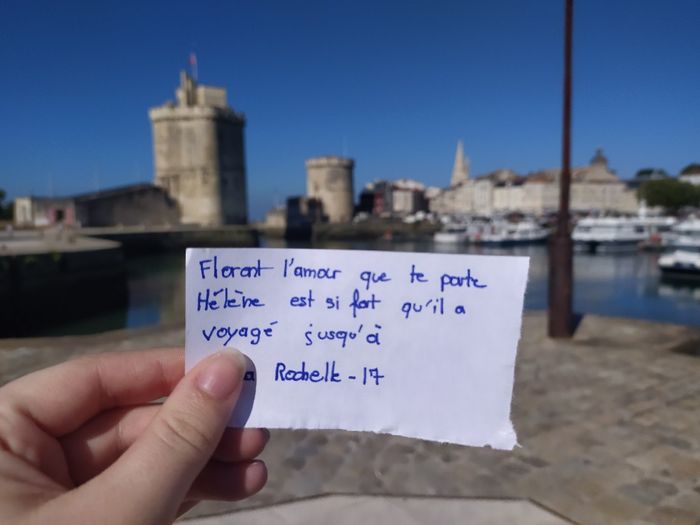 Florant l'amour que te porte
Hélène est si fort qu'il a
voyagé jusqu'à
a Rochelle - 17